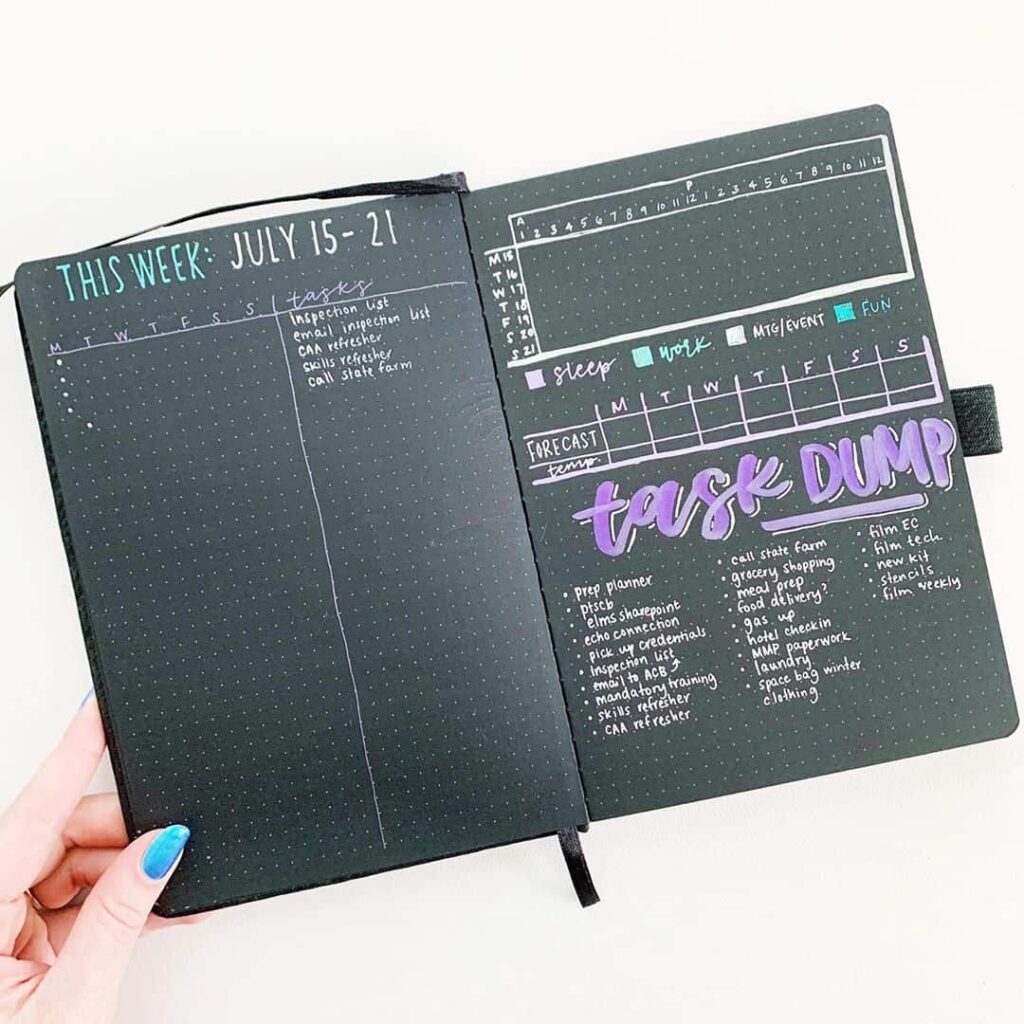 THIS WEEK: JULY 15-21
M T W T F S S tasks
Inspection List
email inspection list
CAA refresher
skills refresher
call state farm
A P
1 2 3 4 5 6 7 8 9 10 11 12 1 2 3 4 5 6 7 8 9 10 11 12
M 15
T 16
W 17
T 18
F 19
S 20
S 21
sleep work MTG/EVENT FUN
M T W T F S S
FORECAST
temp.
task DUMP
• prep planner
• ptscb
• elms sharepoint
• echo connection
• pick up credentials
• Inspection list
• email to ACB
• mandatory training
• skills refresher
• CAA refresher
• call state farm
• grocery shopping
• meal prep
• food delivery?
• gas up
• hotel checkin
• MMP paperwork
• laundry
• space bag winter
clothing
• film EC
• film tech
• new kit
• stencils
• film weekly